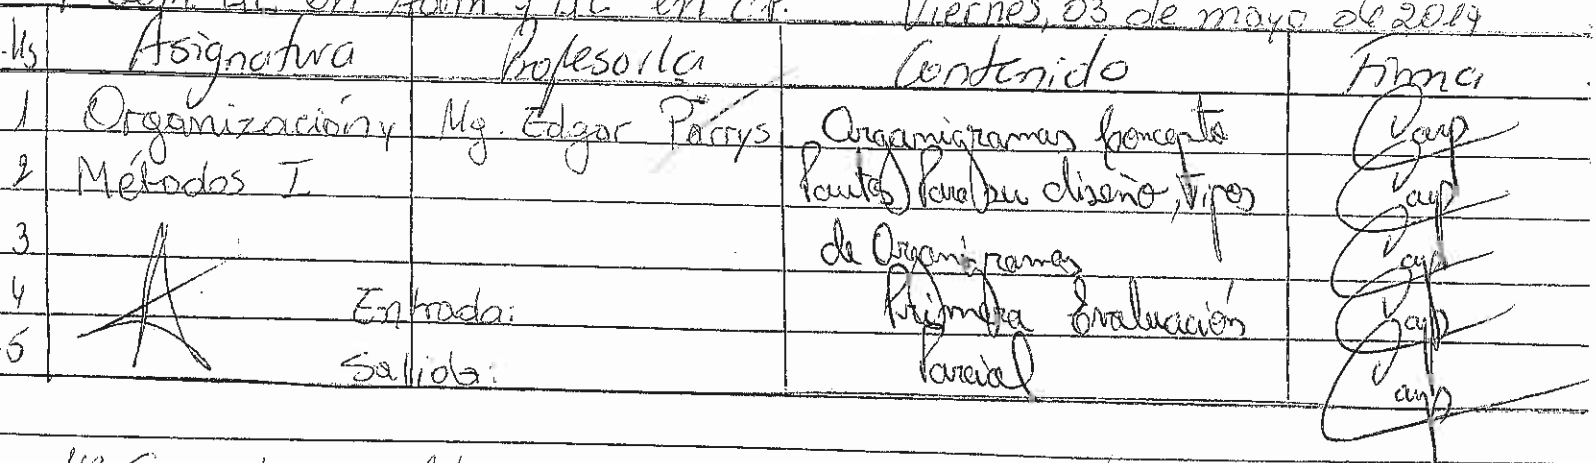 en Adm y Lic en C.P. Viernes, 03 de mayo de 2019
Hs Asignatura Profesor/a Contenido Firma
1 Organización y Mg. Edgar Parrys Organigramas Concepto
2 Métodos I Pautas Para su diseño, Tipos
3 de Organigramas
4 Entrada: Primera Evaluación
5 Salida: Parcial